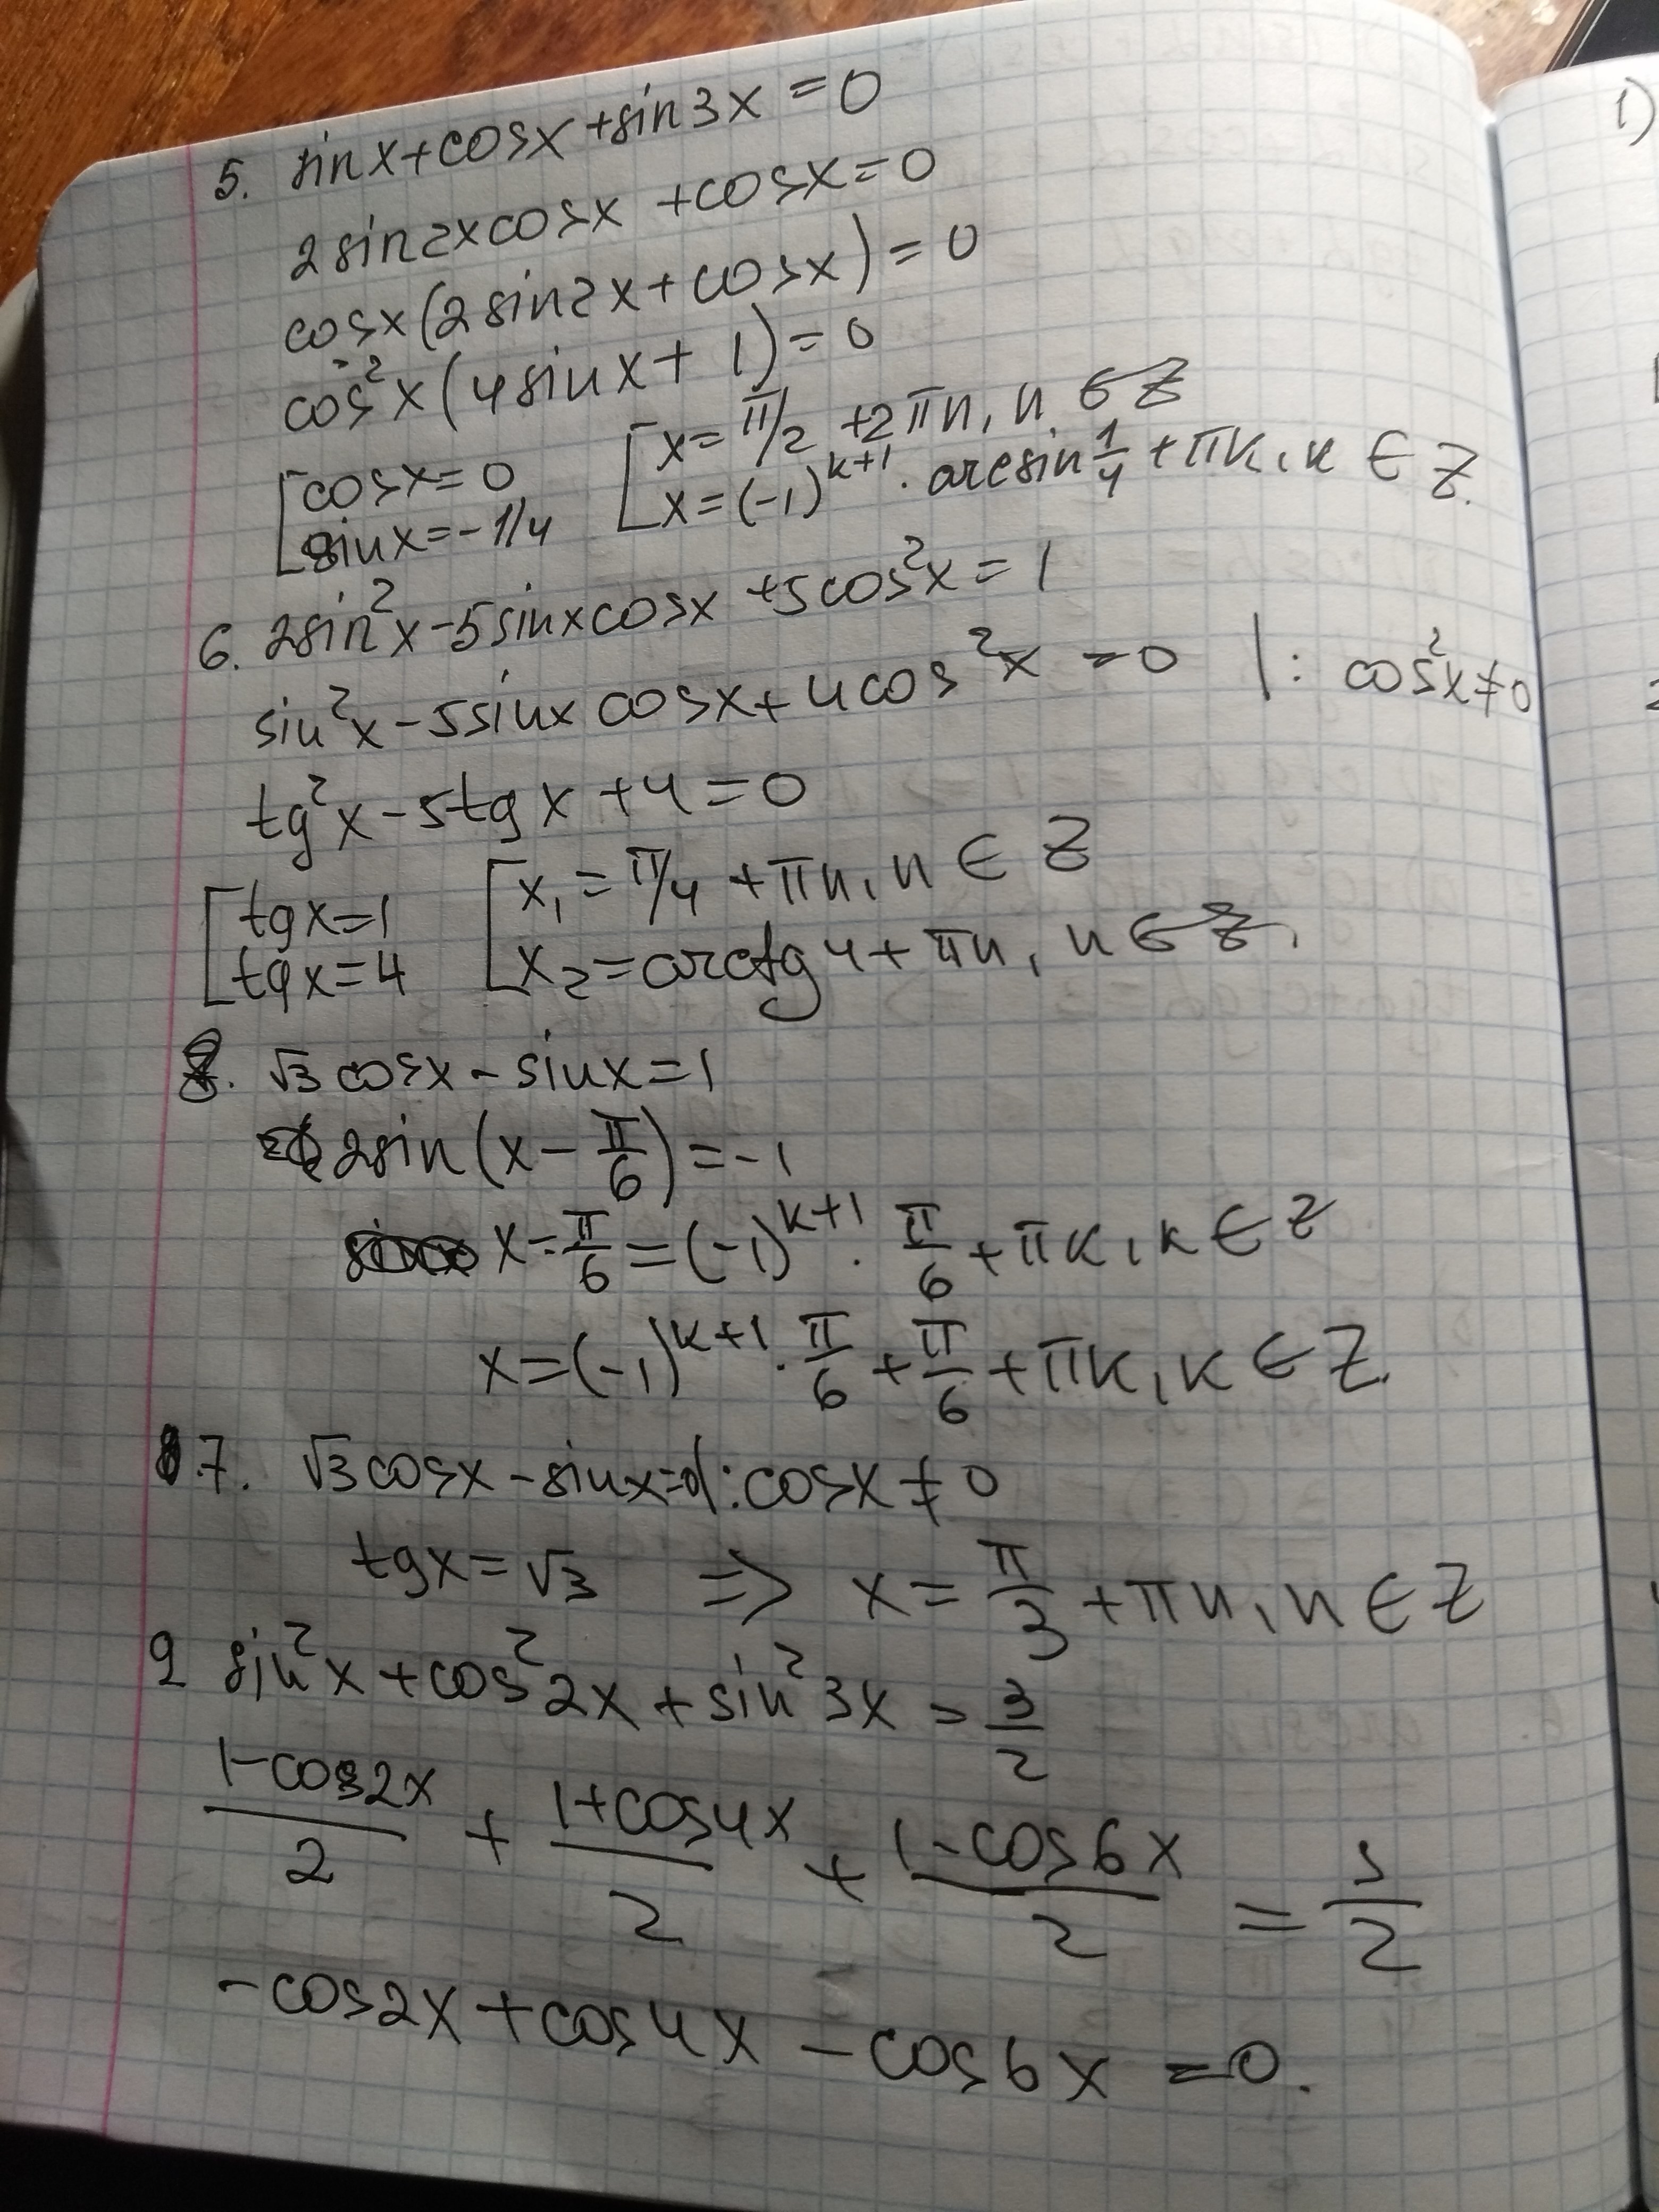 5. sinx+cosx+sin3x=0
2sin2xcosx+cosx=0
cosx(2sin2x+cosx)=0
cos²x(4sinx+1)=0
[cosx=0 [x=π/2+2πn, n∈Z
[sinx=-1/4 [x=(-1)^{k+1}·arcsin 1/4+πk, k∈Z.
6. 2sin²x-5sinxcosx+5cos²x=1
sin²x-5sinxcosx+4cos²x=0 |:cos²x≠0
tg²x-5tgx+4=0
[tgx=1 [x₁=π/4+πn, n∈Z
[tgx=4 [x₂=arctg4+πn, n∈Z.
8. √3cosx-sinx=1
2sin(x-π/6)=-1
x-π/6=(-1)^{k+1}·π/6+πk, k∈Z
x=(-1)^{k+1}·π/6+π/6+πk, k∈Z.
7. √3cosx-sinx=0|:cosx≠0
tgx=√3 => x=π/3+πn, n∈Z
9 sin²x+cos²2x+sin²3x=3/2
(1-cos2x)/2+(1+cos4x)/2+(1-cos6x)/2=3/2
-cos2x+cos4x-cos6x=0.
1)